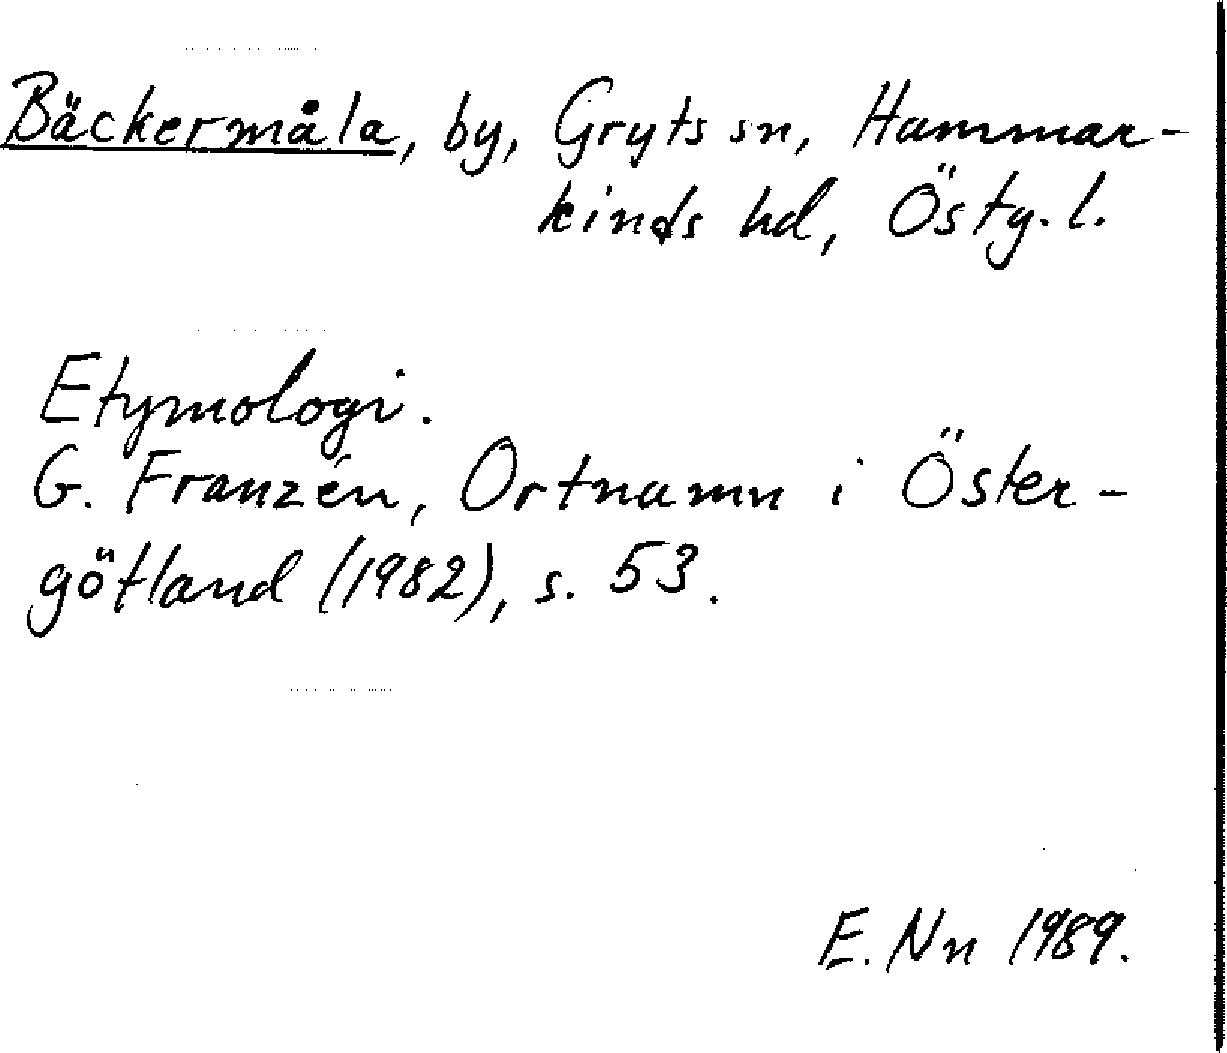 Bäckermåla, by, Gryts sn, Hammar-
kinds hd, Östg. l.
Etymologi.
G. Franzén, Ortnamn i Öster-
götland (1982), s. 53.
E. Nn 1989.